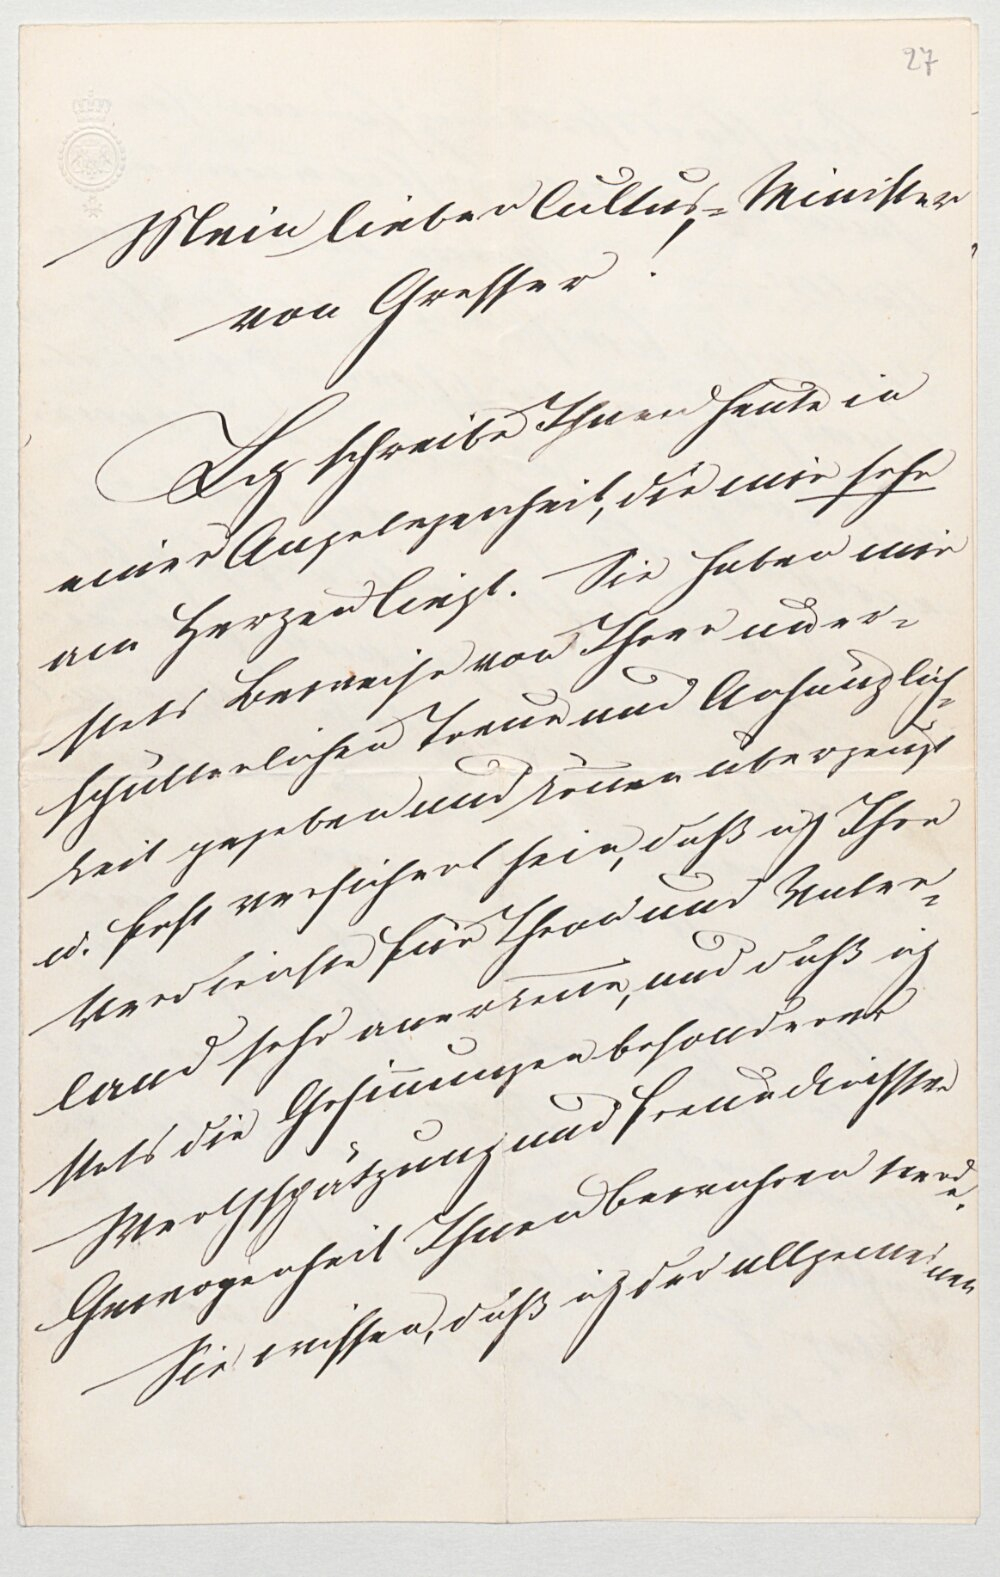 27
Mein lieber Cultus-Minister
von Gresser!
Ich schreibe Ihnen heute in
einer Angelegenheit, die mir sehr
am Herzen liegt. Sie haben mir
stets Beweise von Ihrer uner-
schütterlichen Treue und Anhänglich-
keit gegeben und können überzeugt
u. fest versichert sein, daß ich Ihre
Verdienste für Thron und Vater-
land sehr anerkenne, und daß ich
stets die Gesinnungen besonderer
Werthschätzung und freundlichster
Gewogenheit Ihnen bewahren werde.
Sie wissen, daß ich den allgemeinen